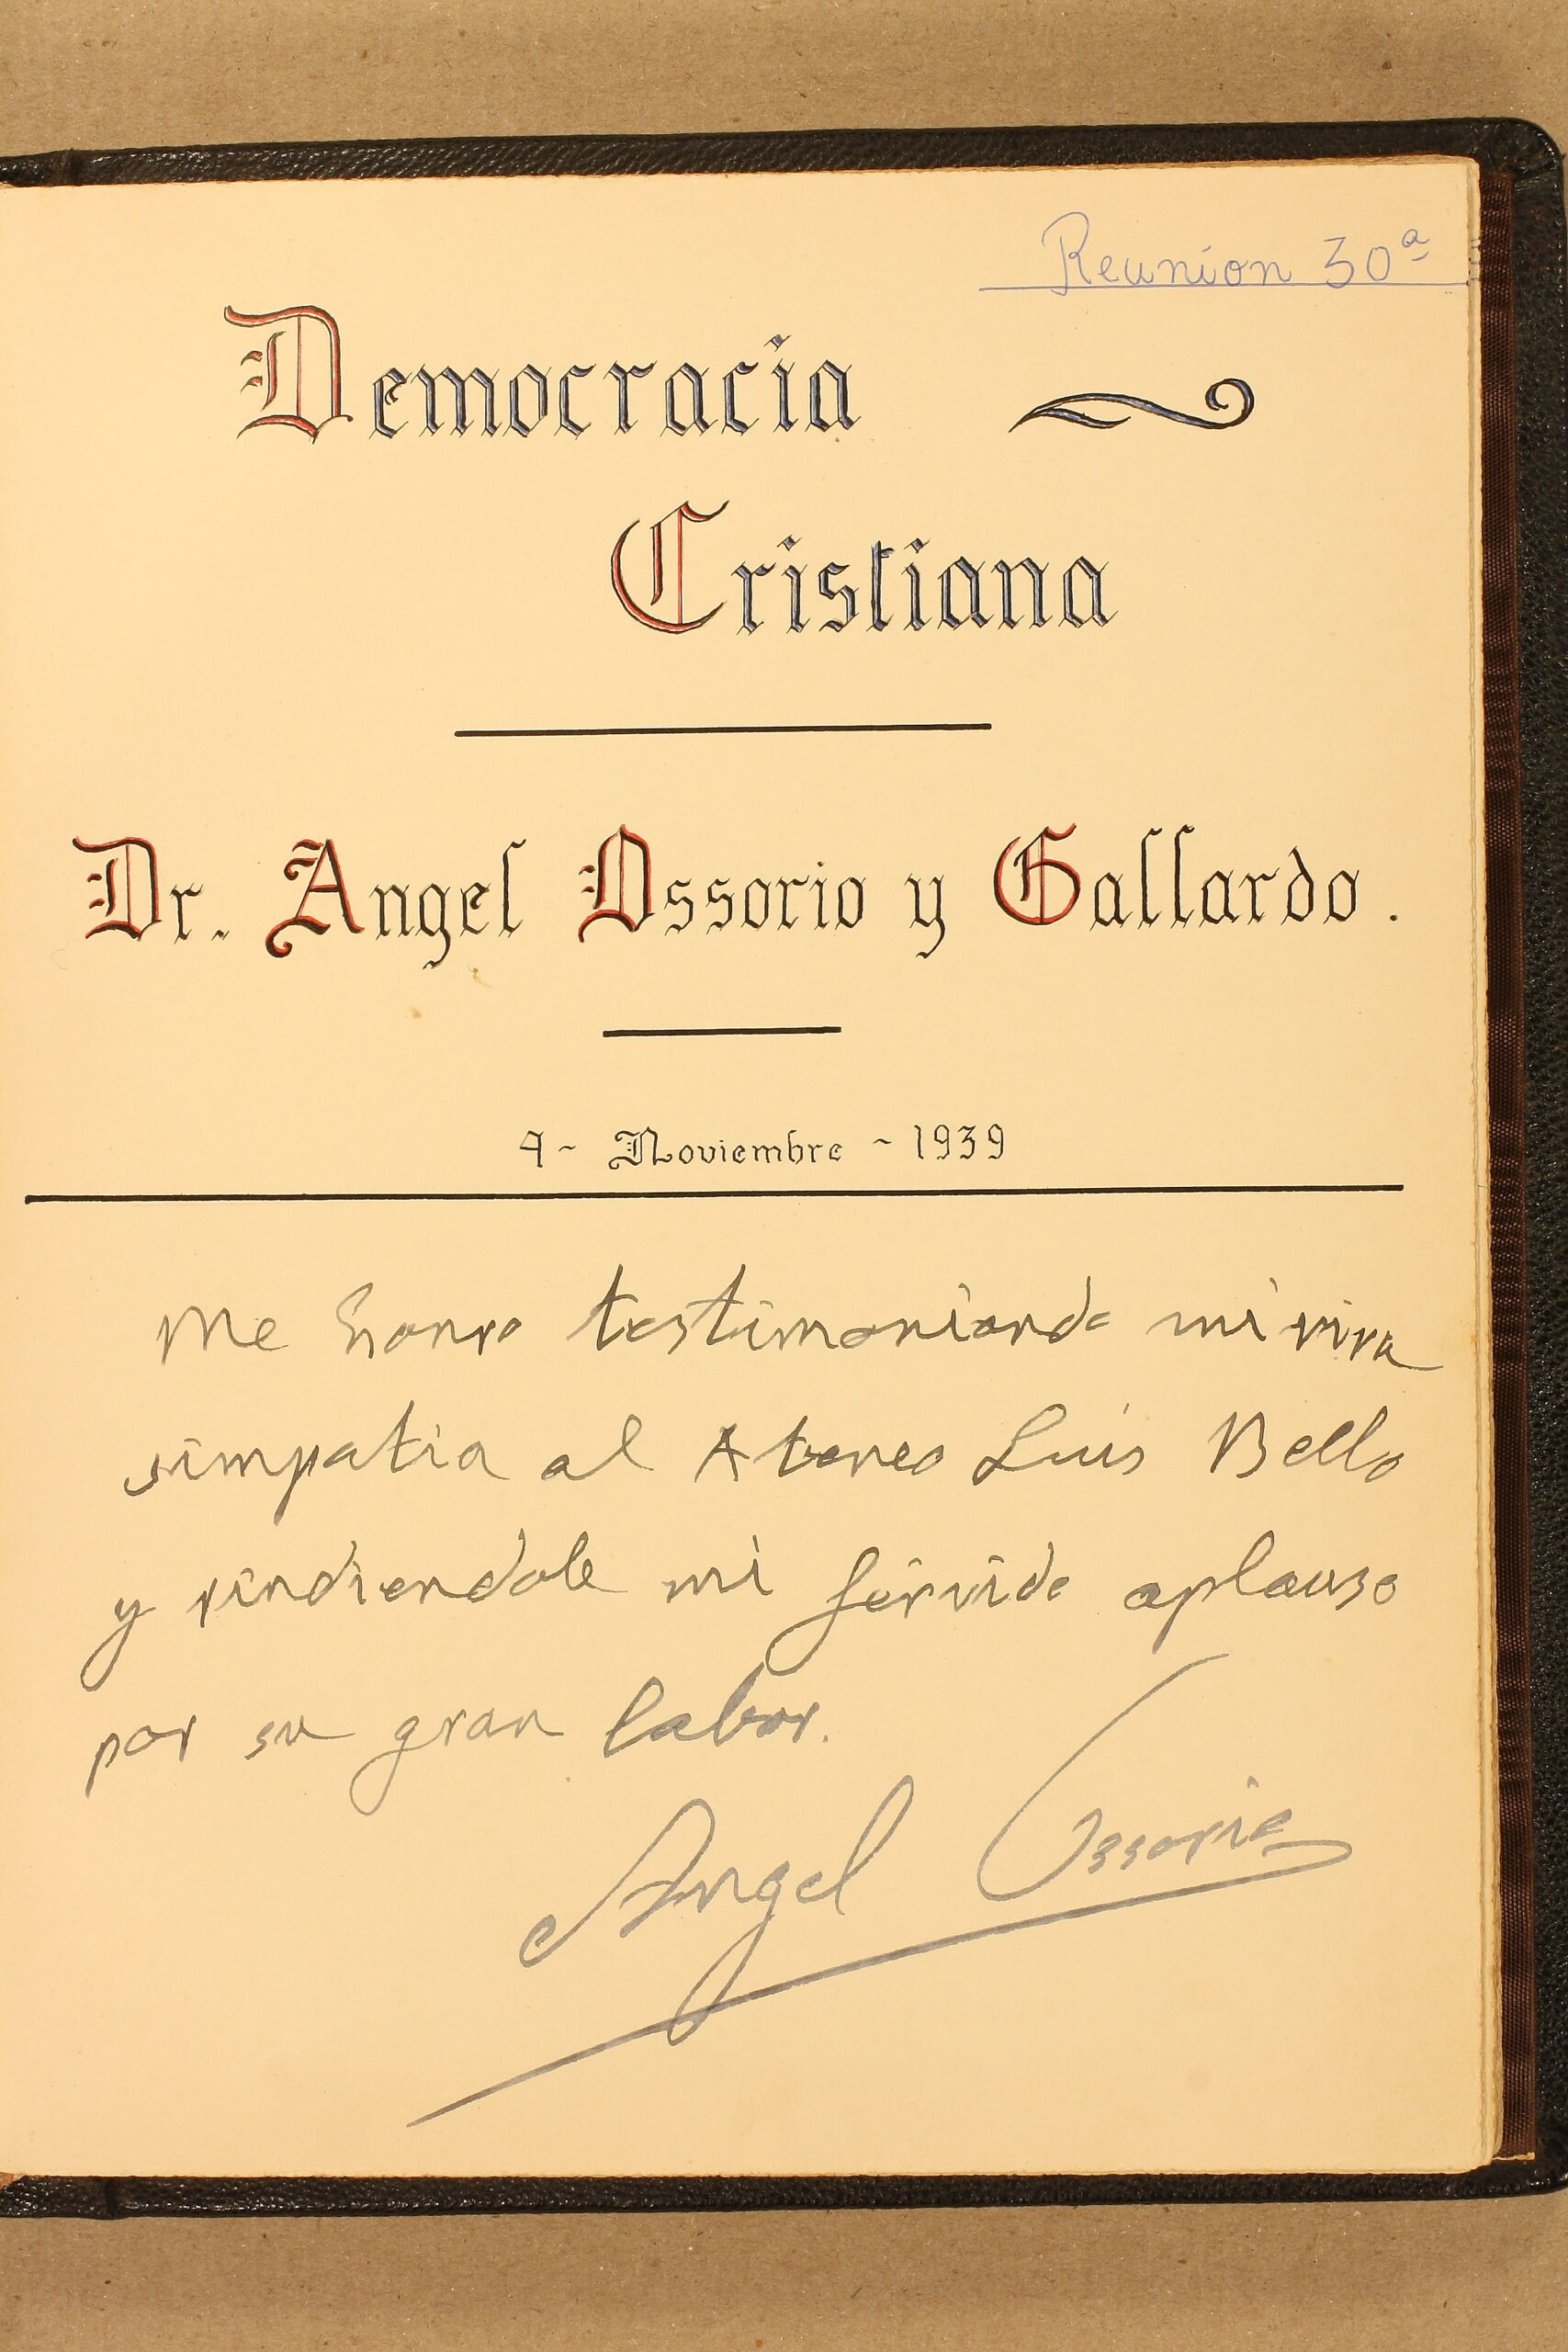 Reunion 30ª
Democracia
Cristiana
Dr. Angel Ossorio y Gallardo.
4 - Noviembre - 1939
Me honro testimoniando mi viva
simpatia al Ateneo Luis Bello
y rindiendole mi férvido aplauso
por su gran labor.
Angel Ossorio